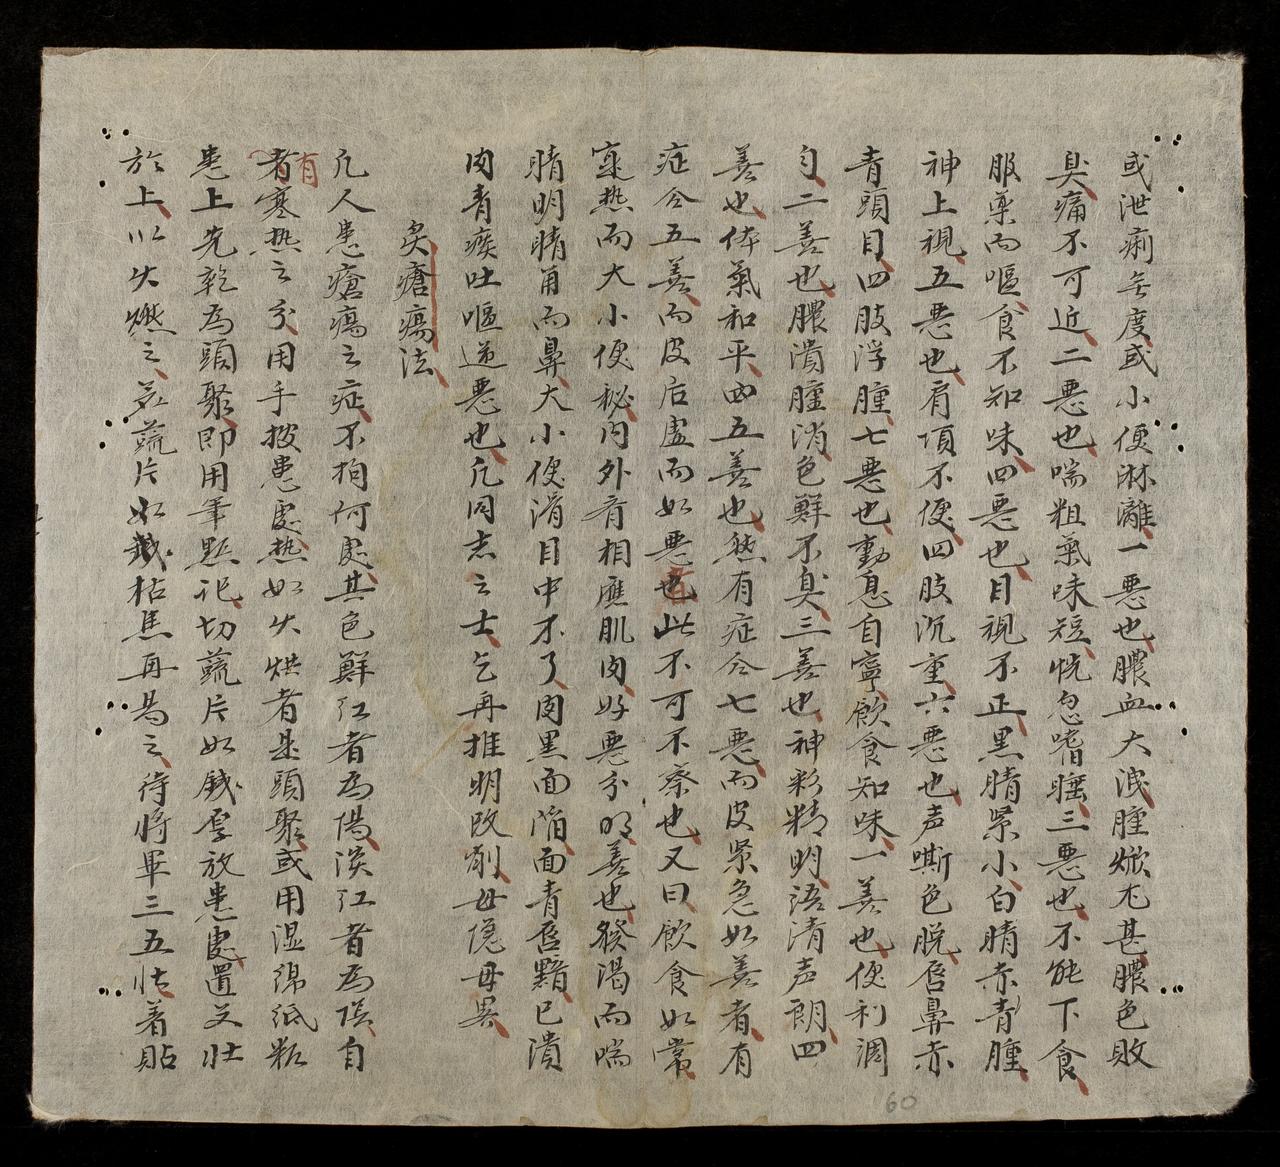 或泄痢无度或小便淋漓一恶也膿血大洩腫焮尤甚膿色敗
臭痛不可近二恶也喘粗氣味短恍忽嗜睡三恶也不能下食
服藥而嘔食不知味四恶也目視不正黑睛緊小白睛赤青腫
神上視五恶也肩項不便四肢沉重六恶也声嘶色脱唇鼻赤
青頭目四肢浮腫七恶也動息自寧飲食知味一善也便利調
匀二善也膿潰腫消色鮮不臭三善也神彩精明語清声朗四
善也体氣和平由五善也然有症合七恶而皮緊急如善者有
症合五善而皮后虚而如恶也者此不可不察也又曰飲食如常
寔热而大小便秘内外肯相應肌肉好恶分明善也發渴而喘
睛明睛角而鼻大小便滑目中不了肉黑面陷面青唇黯已潰
肉青痰吐嘔逆恶也凡同志之士乞再推明改削毋隐毋異
灸瘡瘍法
凡人患瘡瘍之症不拘何處其色鮮江者為陽淡江者為陰自
者有寒热之分用手按患處热如火烘者是頭聚或用湿绵紙粘
患上先乾為頭聚即用筆點記切蒜片如錢厚放患處置艾壮
於上以火燃之若蒜片如錢枯焦再易之待將畢三五壮着貼